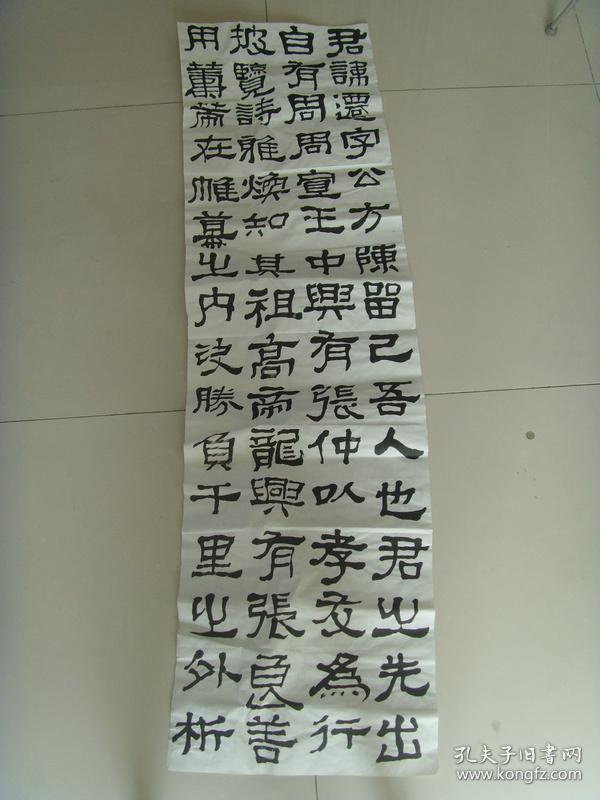 君諱遷字公方陳留己吾人也君之先出
自有周周宣王中興有張仲以孝友為行
披覽詩雅煥知其祖高帝龍興有張良善
用籌策在帷幕之内決勝負千里之外析
孔夫子旧書网
www.kongfz.com